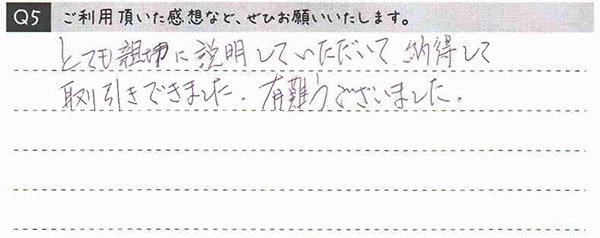 Q5 ご利用頂いた感想など、ぜひお願いいたします。
とても親切に説明していただいて 納得して
取引きできました。有難うございました。